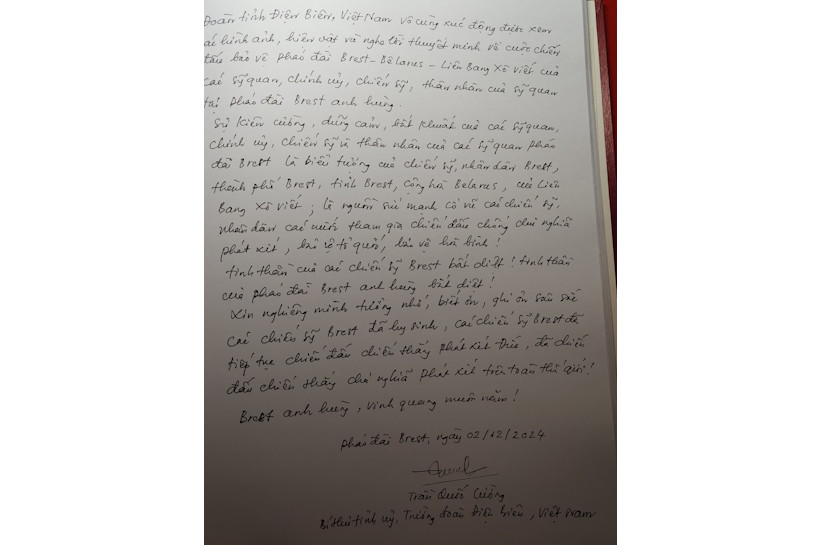 Đoàn tỉnh Điện Biên, Việt Nam vô cùng xúc động được xem
các hình ảnh, hiện vật và nghe lời thuyết minh về cuộc chiến
đấu bảo vệ pháo đài Brest - Bêlarus - Liên Bang Xô Viết của
các sỹ quan, chính uỷ, chiến sỹ, thân nhân của sỹ quan
tại pháo đài Brest anh hùng.
Sự kiên cường, dũng cảm, bất khuất của các sỹ quan,
chính uỷ, chiến sỹ và thân nhân của các sỹ quan pháo
đài Brest là biểu tượng của chiến sỹ, nhân dân Brest,
thành phố Brest, tỉnh Brest, Cộng hoà Belarus, của Liên
Bang Xô Viết; là nguồn sức mạnh cổ vũ các chiến sỹ,
nhân dân các nước tham gia chiến đấu chống chủ nghĩa
phát xít, bảo vệ tổ quốc, bảo vệ hoà bình!
Tinh thần của các chiến sỹ Brest bất diệt! Tinh thần
của pháo đài Brest anh hùng bất diệt!
Xin nghiêng mình tưởng nhớ, biết ơn, ghi ơn sâu sắc
các chiến sỹ Brest đã hy sinh, các chiến sỹ Brest đã
tiếp tục chiến đấu chiến thắng phát xít Đức, đã chiến
đấu chiến thắng chủ nghĩa phát xít trên toàn thế giới!
Brest anh hùng, vinh quang muôn năm!
Pháo đài Brest, ngày 02/12/2024
Trần Quốc Cường
Bí thư tỉnh uỷ, Trưởng đoàn Điện Biên, Việt Nam